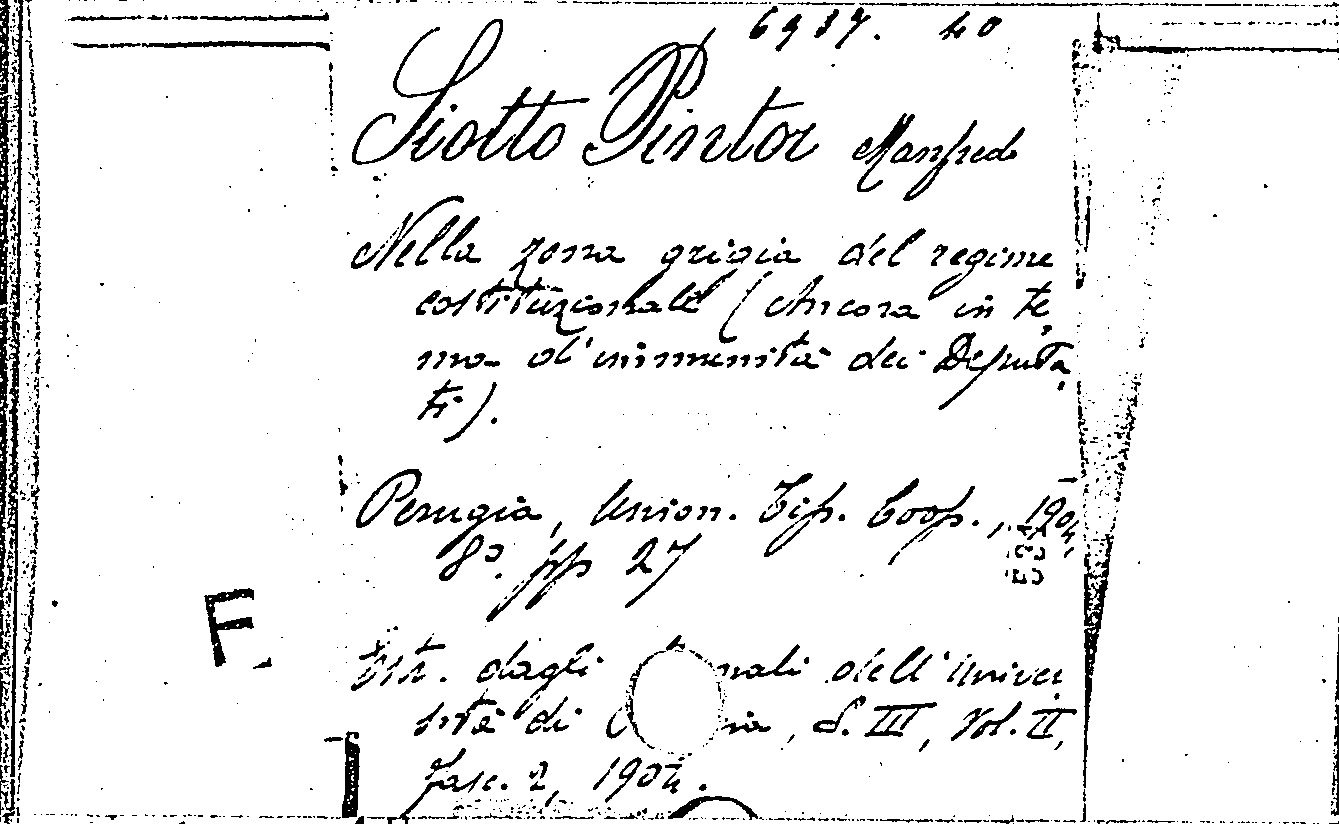 6937. 40
Siotto Pintor Manfredo
Nella zona grigia del regime
costituzionale (Ancora in te,
ma d'immunità dei Deputa,
ti).
Perugia, Union. Tip. Coop., 1904,
8º. pp 27
F.
Estr. dagli nali dell'Univer
sità di ia, S. III, Vol. II,
fasc. 2, 1904.